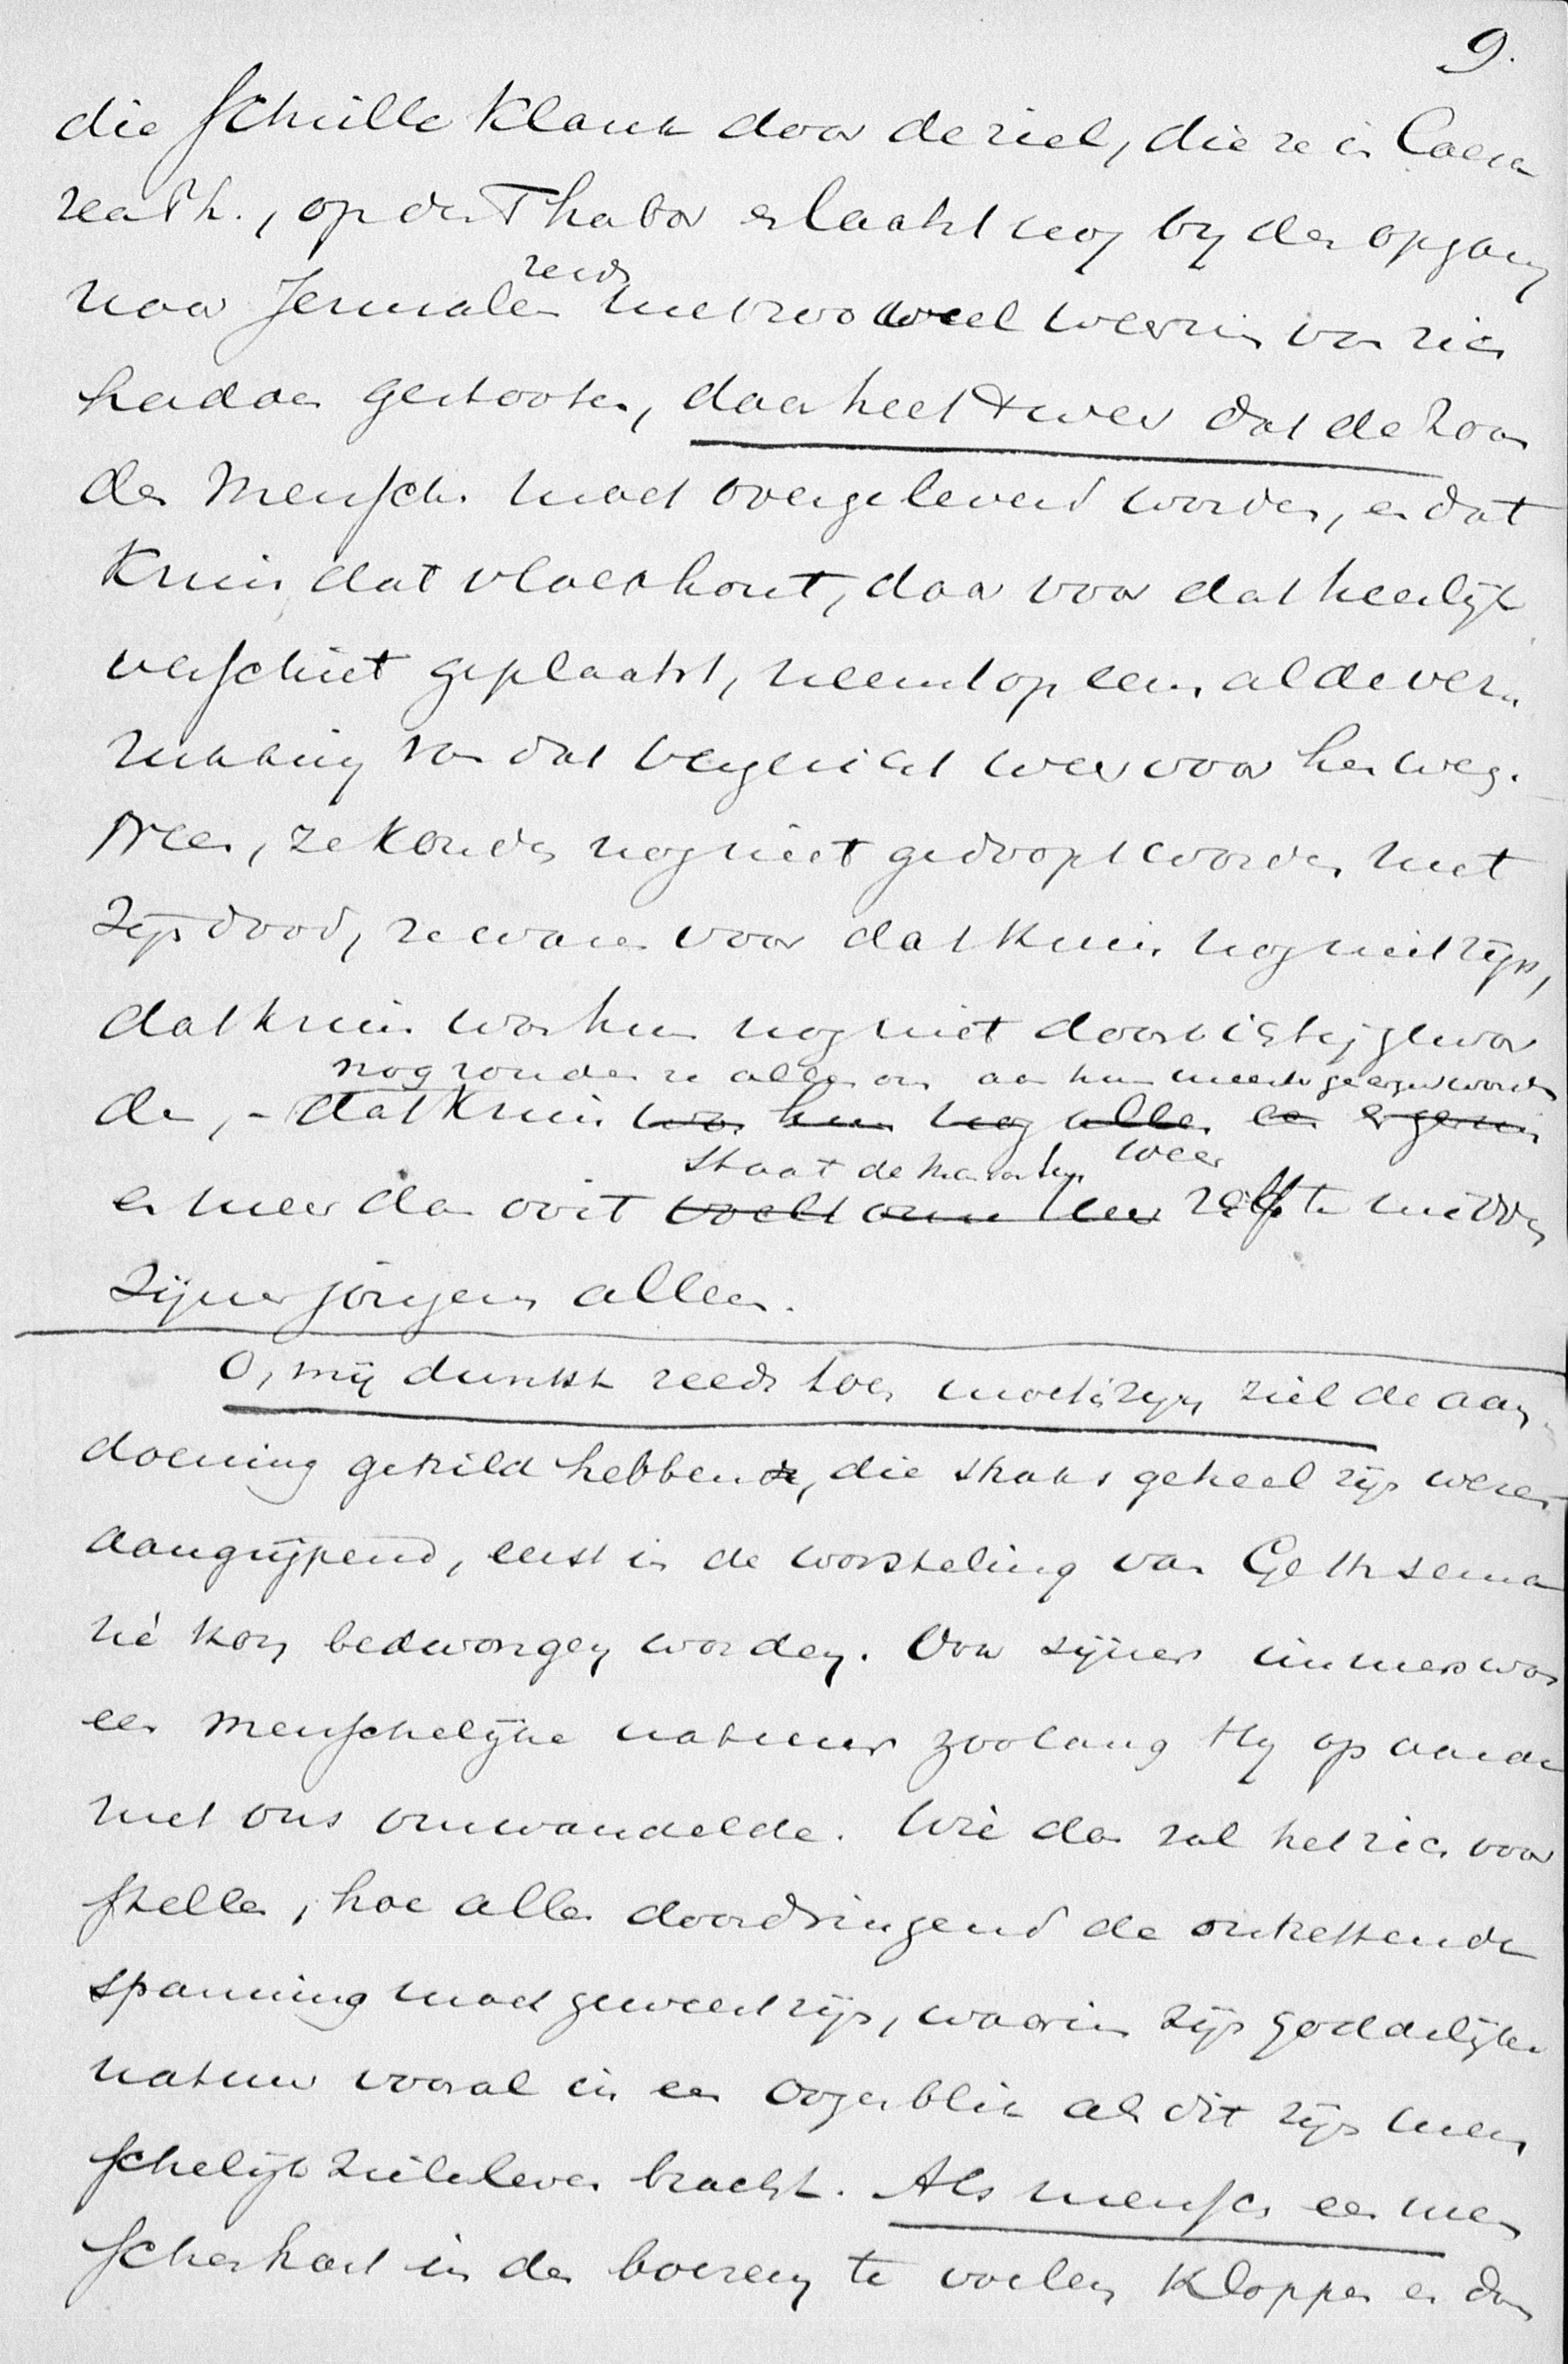 9.
die schrille klank door de ziel, die ze in Caesa
rea Ph., op den Thabor en laatst nog by den opgang
naar Jerusalem reeds met zooveel weerzin van zich
hadden gestooten, daar heet het weer dat de Zoon
des Menschen moet overgeleverd worden, en dat
kruis, dat vloekhout, daar voor dat heerlijk
verschiet geplaatst, neemt op eens al de ver
rukking van dat vergezicht weer voor hen weg.
Neen, ze konden nog niet gedoopt worden met
Zijn dood, ze waren voor dat kruis nog niet rijp,
dat kruis was hun nog niet doorzichtig gewor
nog zouden ze allen aan hun meester geergerd worden
den, – dat kruis was hun nog allen een ergernis
staat de Heiland weer
en meer dan ooit voelt zelf te midden
Zijner jongeren alleen.
O, mij dunkt reeds toen moet in zijn ziel de aan
doening getrild hebben, die straks geheel zijn wezen
aangrijpend, eerst in de worsteling van Gethsema
né kon bedwongen worden. Ook zijner immers was
een menschelijke natuur zoolang Hy op aarde
met ons omwandelde. Wie dan zal het zich voor
stellen, hoe alles doordringend de ontzettende
spanning moet geweest zijn, waarin zijn goddelijke
natuur vooral in een oogenblik als dit zijn men
schelijk zieleleven bracht. Als mensch een men
schenhart in den boezem te voelen kloppen en dan